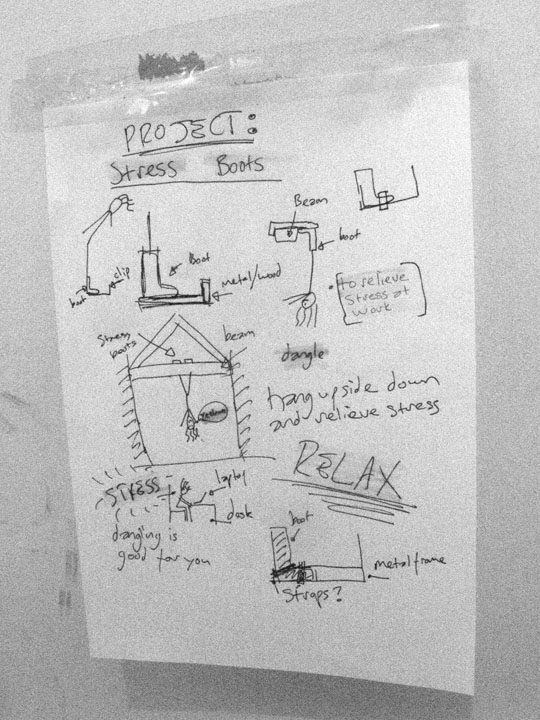 PROJECT:
Stress Boots
Beam
boot
clip
boot
Boot
metal/wood
• [to relieve
stress at
work]
stress
boots
beam
dangle
hang upside down
and relieve stress
RELAX
STRESS
laptop
desk
dangling is
good for you
boot
metal frame
Straps?